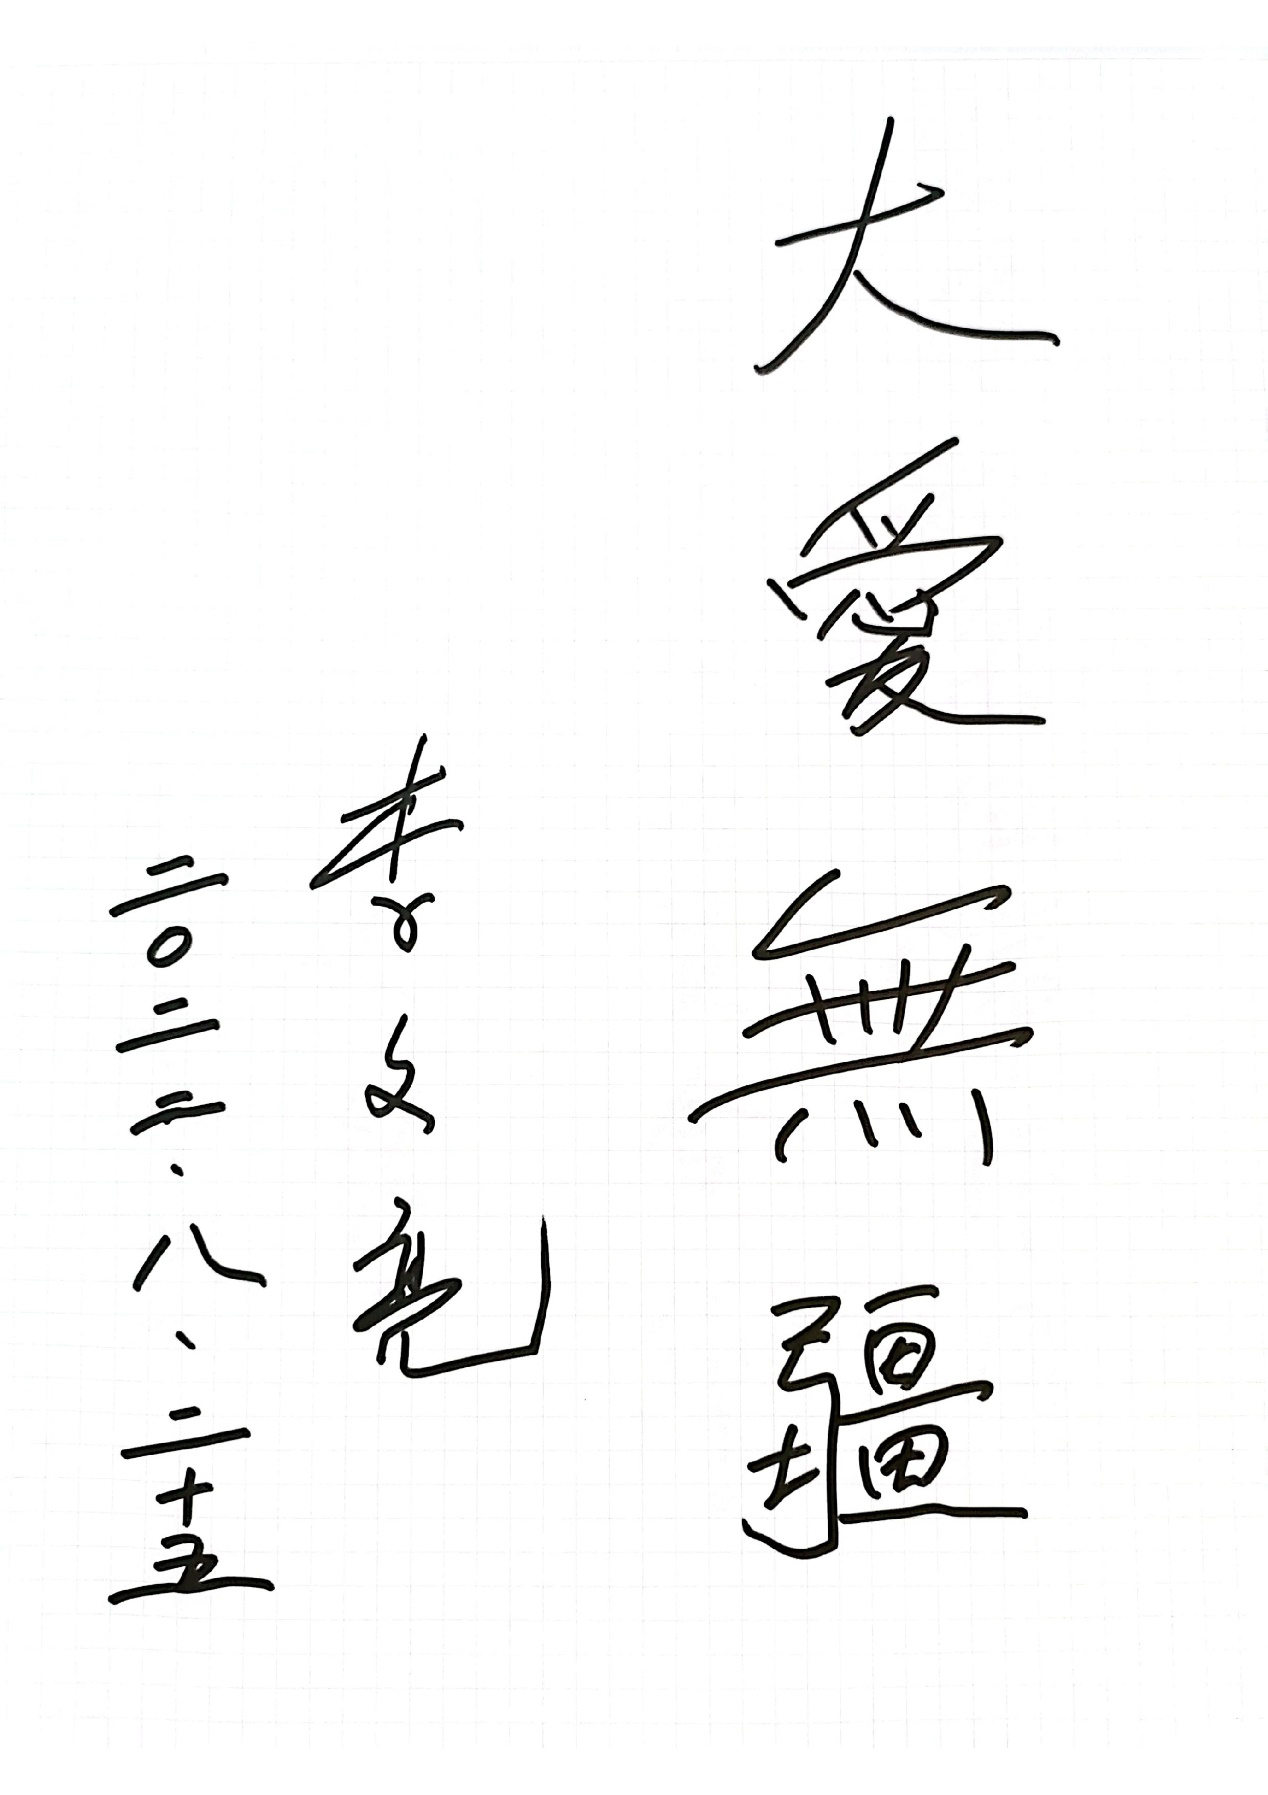 大愛無疆
李文亮
二〇二二.八.二十五